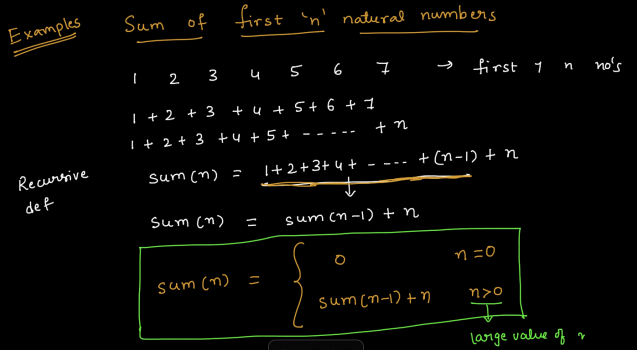 Examples
Sum of first 'n' natural numbers
1 2 3 4 5 6 7 → first 7 n no's
1 + 2 + 3 + 4 + 5 + 6 + 7
1 + 2 + 3 + 4 + 5 + ------ + n
Recursive def
sum(n) = 1+2+3+4+ ------ + (n-1) + n
sum(n) = sum(n-1) + n
sum(n) = { 0 n=0
sum(n-1)+n n>0
large value of n